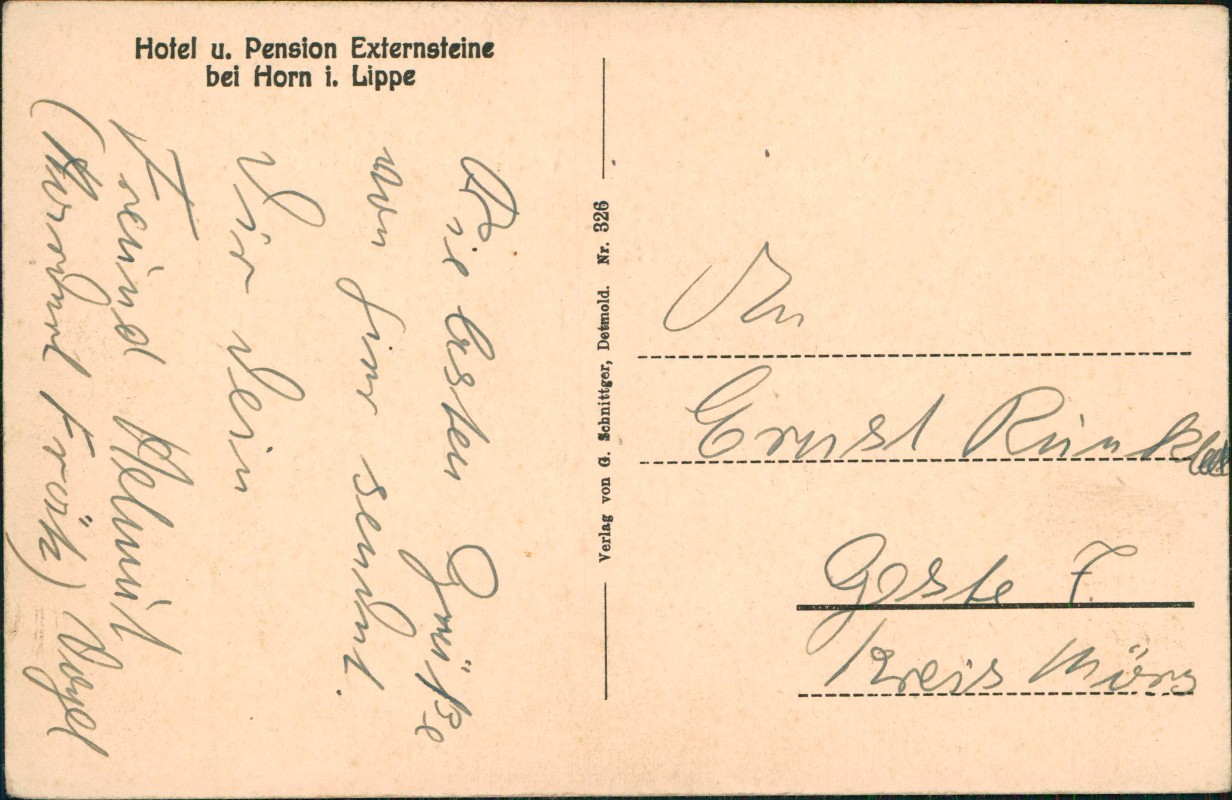 Hotel u. Pension Externsteine
bei Horn i. Lippe
Die besten Grüße
von hier sendet.
Dir dein
Freund Helmut
Vogel
Verlag von G. Schnittger, Detmold. Nr. 326
An
Ernst
Goste 7
Kreis Mörs